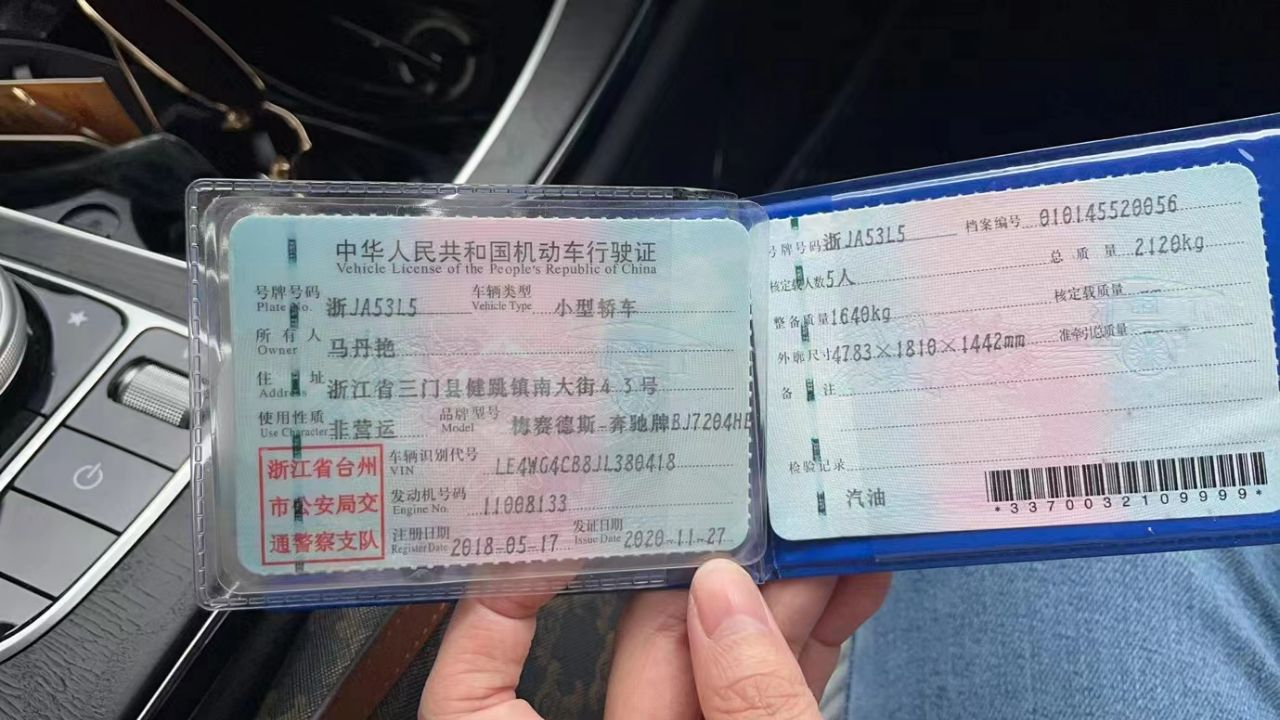 中华人民共和国机动车行驶证
Vehicle License of the People's Republic of China
号牌号码 浙JA53L5 车辆类型 小型轿车
Plate No. Vehicle Type
所有人 马丹艳
Owner
住址 浙江省三门县健跳镇南大街43号
Address
使用性质 非营运 品牌型号 梅赛德斯-奔驰牌BJ7204HE
Use Character Model
浙江省台州
市公安局交
通警察支队
车辆识别代号 LE4WG4CB8JL380418
VIN
发动机号码 11008133
Engine No.
注册日期 2018-05-17 发证日期 2020-11-27
Register Date Issue Date
号牌号码 浙JA53L5 档案编号 010145520056
核定载人数 5人 总质量 2120kg
整备质量 1640kg 核定载质量 --
外廓尺寸 4783×1810×1442mm 准牵引总质量 --
备注
检验记录
汽油
*3370032109999*